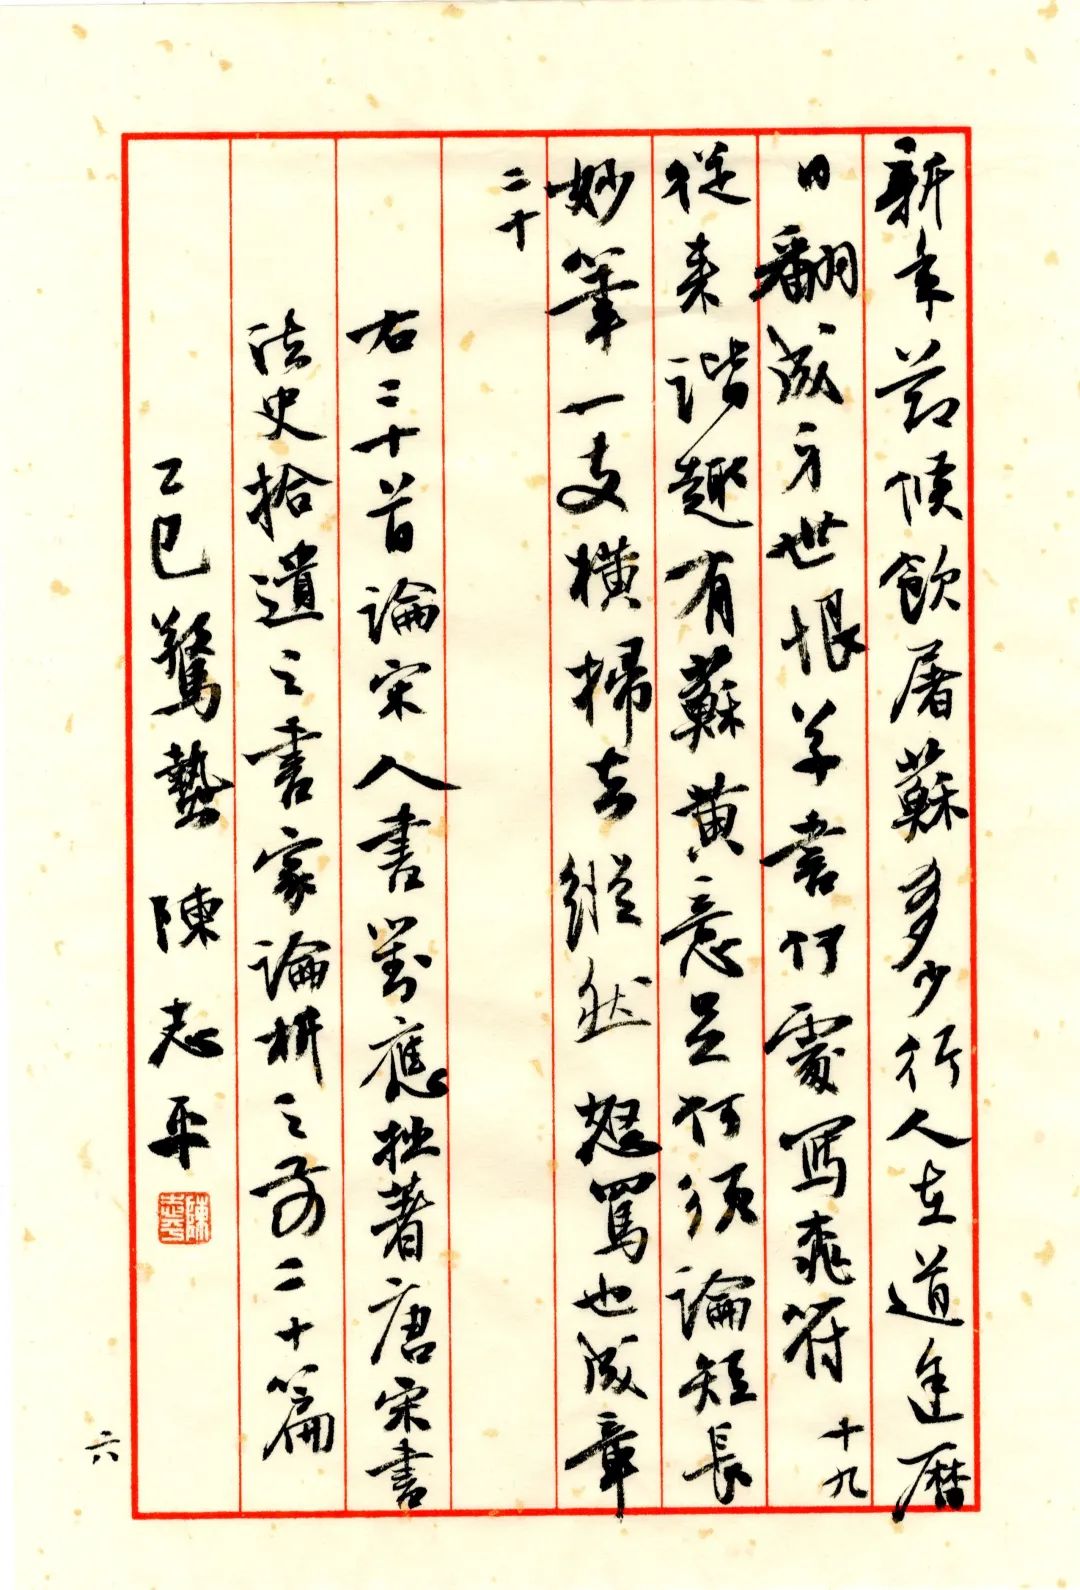 新年節候飲屠蘇多少行人在道途曆
日翻成身世恨草書何處寫桃符 十九
從來諧趣有蘇黃意足何須論短長
妙筆一支橫掃去縱然怒罵也成章
二十
右二十首論宋人書對應拙著唐宋書
法史拾遺之書家論析之前二十篇
乙巳驚蟄 陳志平
陳志平
六